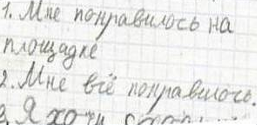 1. Мне понравилось на
площадке
2. Мне всё понравилось.
3. Я хочу